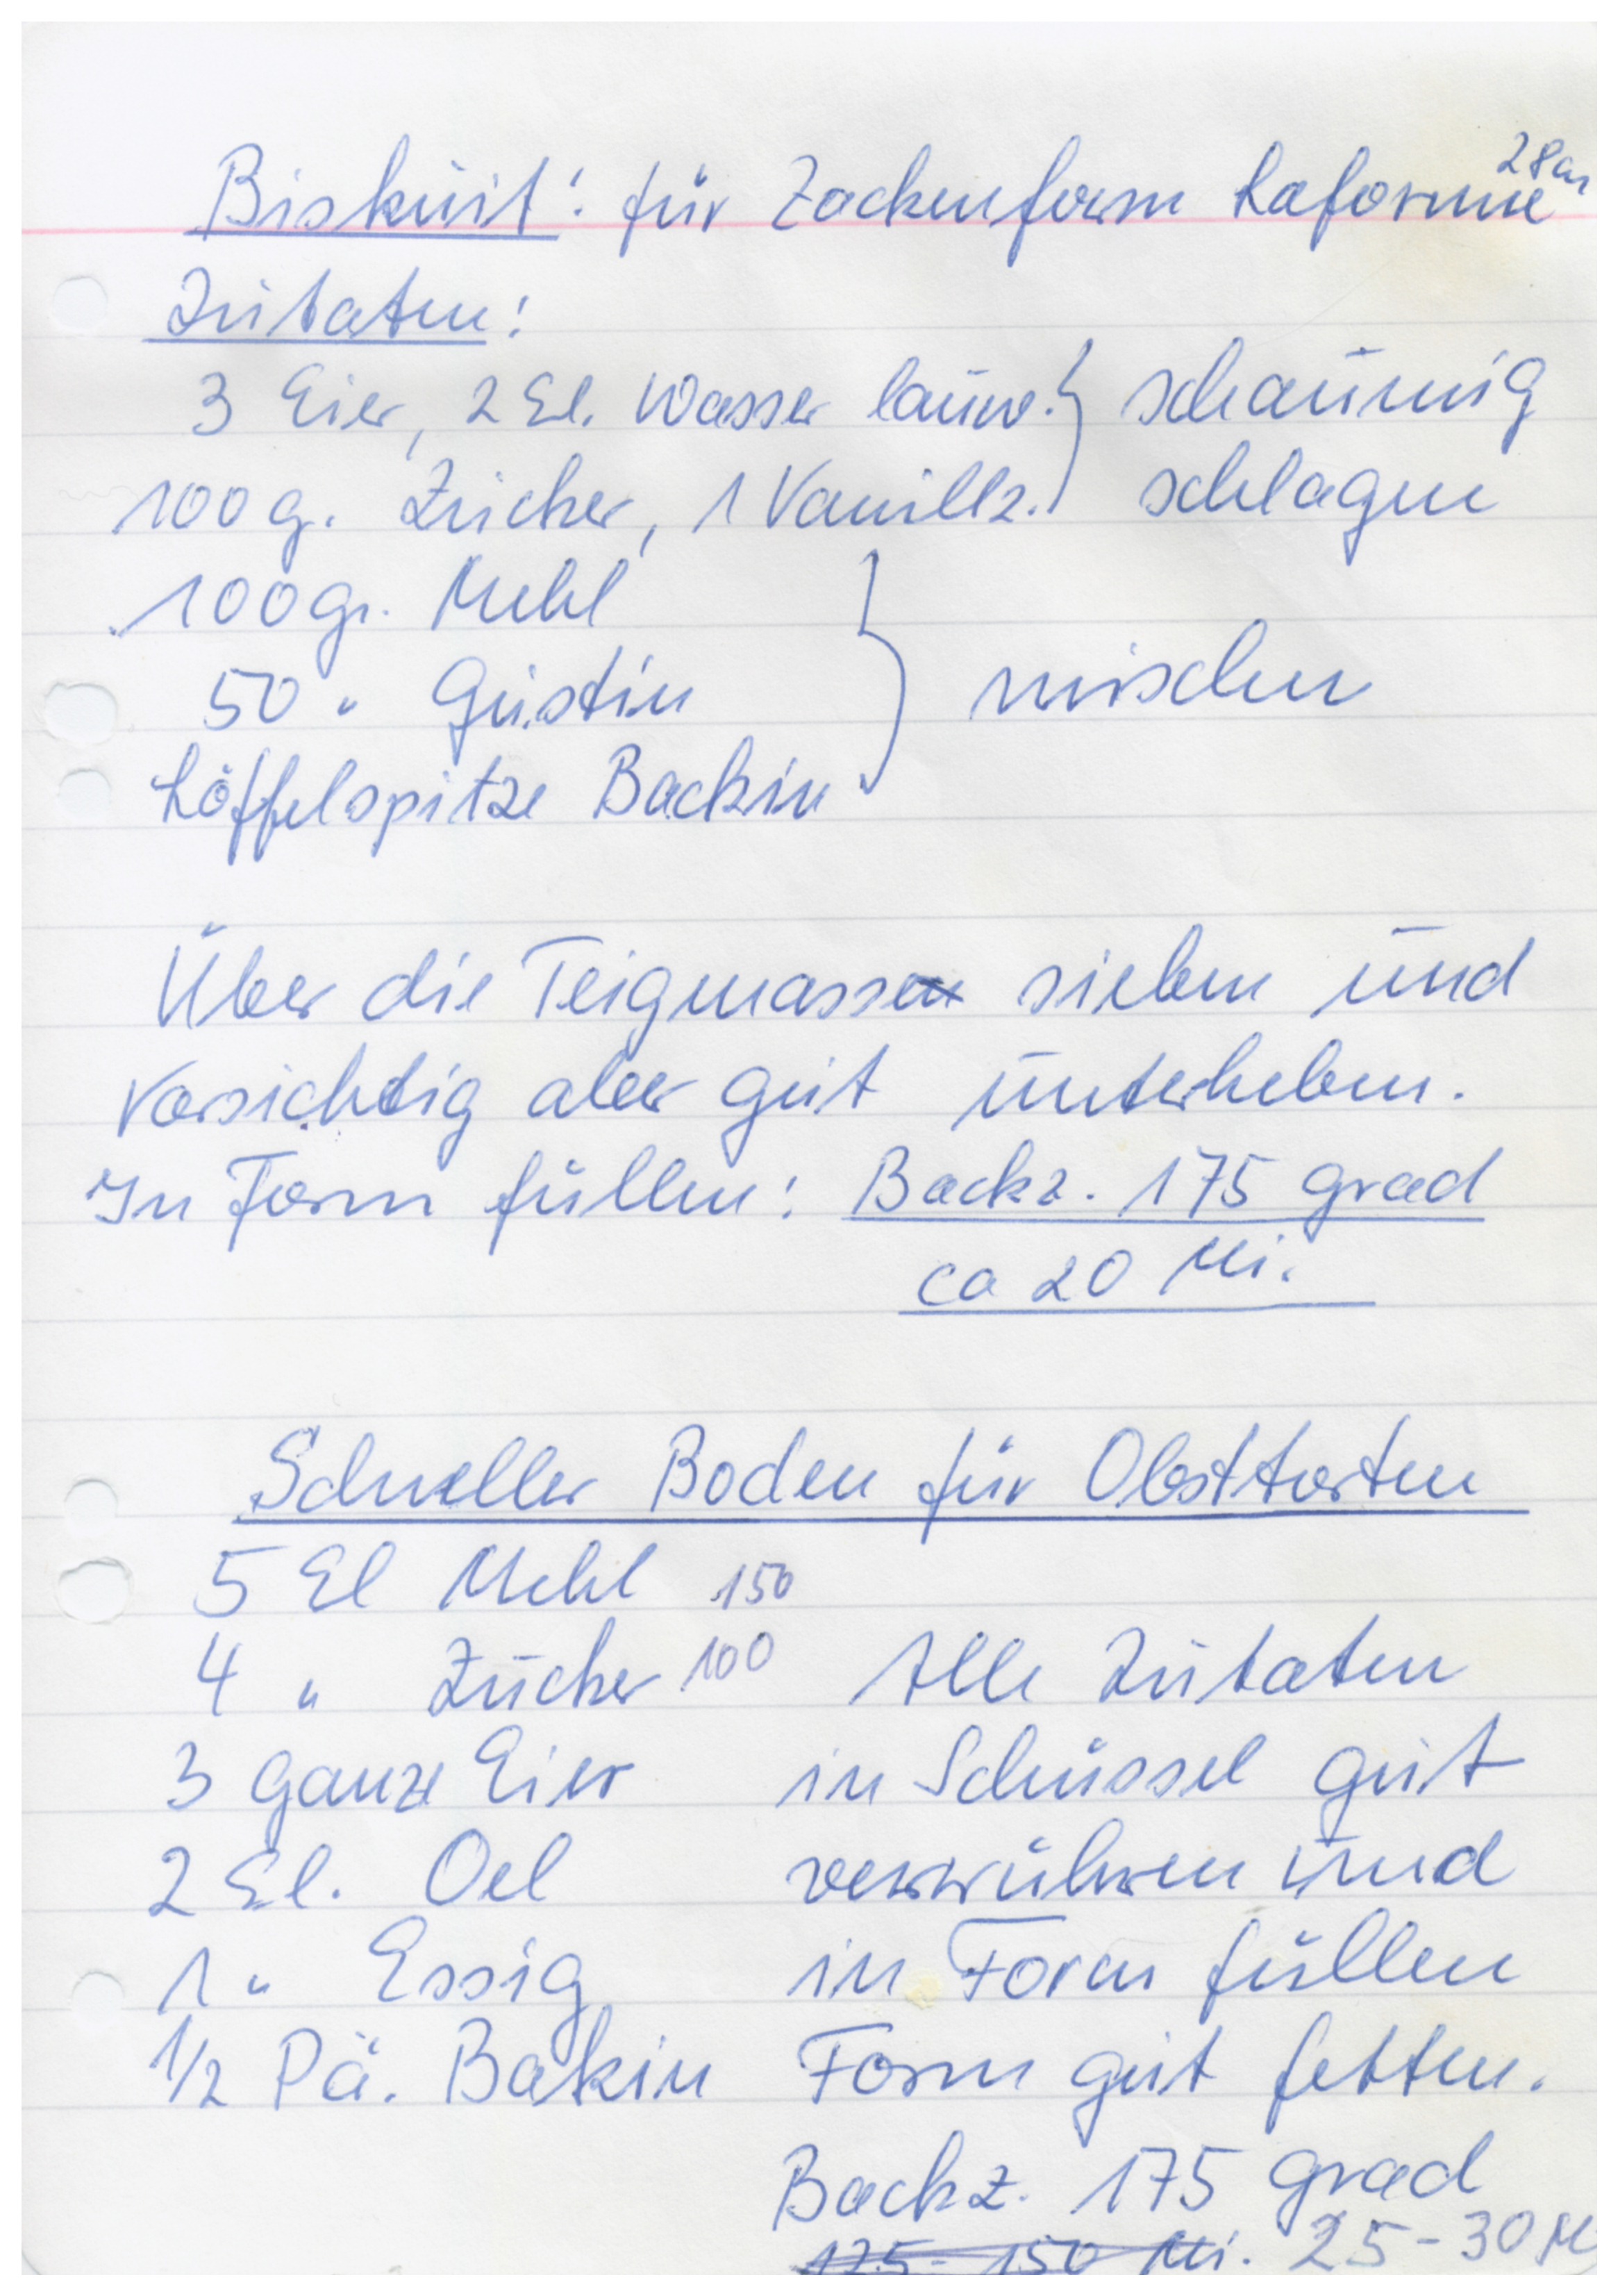 28cm
Biskuit: für Zackenform Laforme
Zutaten:
3 Eier, 2 El. Wasser lauw. } schaumig
100 g. Zucker, 1 Vanillz. } schlagen
100 gr. Mehl
50 " Gustin } mischen
Löffelspitze Backin
Über die Teigmasse sieben und
Vorsichtig aber gut unterheben.
In Form füllen: Backz. 175 grad
ca 20 Mi.
Schneller Boden für Obsttorten
5 El Mehl 150
4 " Zucker 100 Alle Zutaten
3 ganze Eier in Schüssel gut
2 El. Oel verrühren und
1 " Essig in Form füllen
1/2 Pä. Bakin Form gut fetten.
Backz. 175 grad
125-150 Mi. 25-30 M